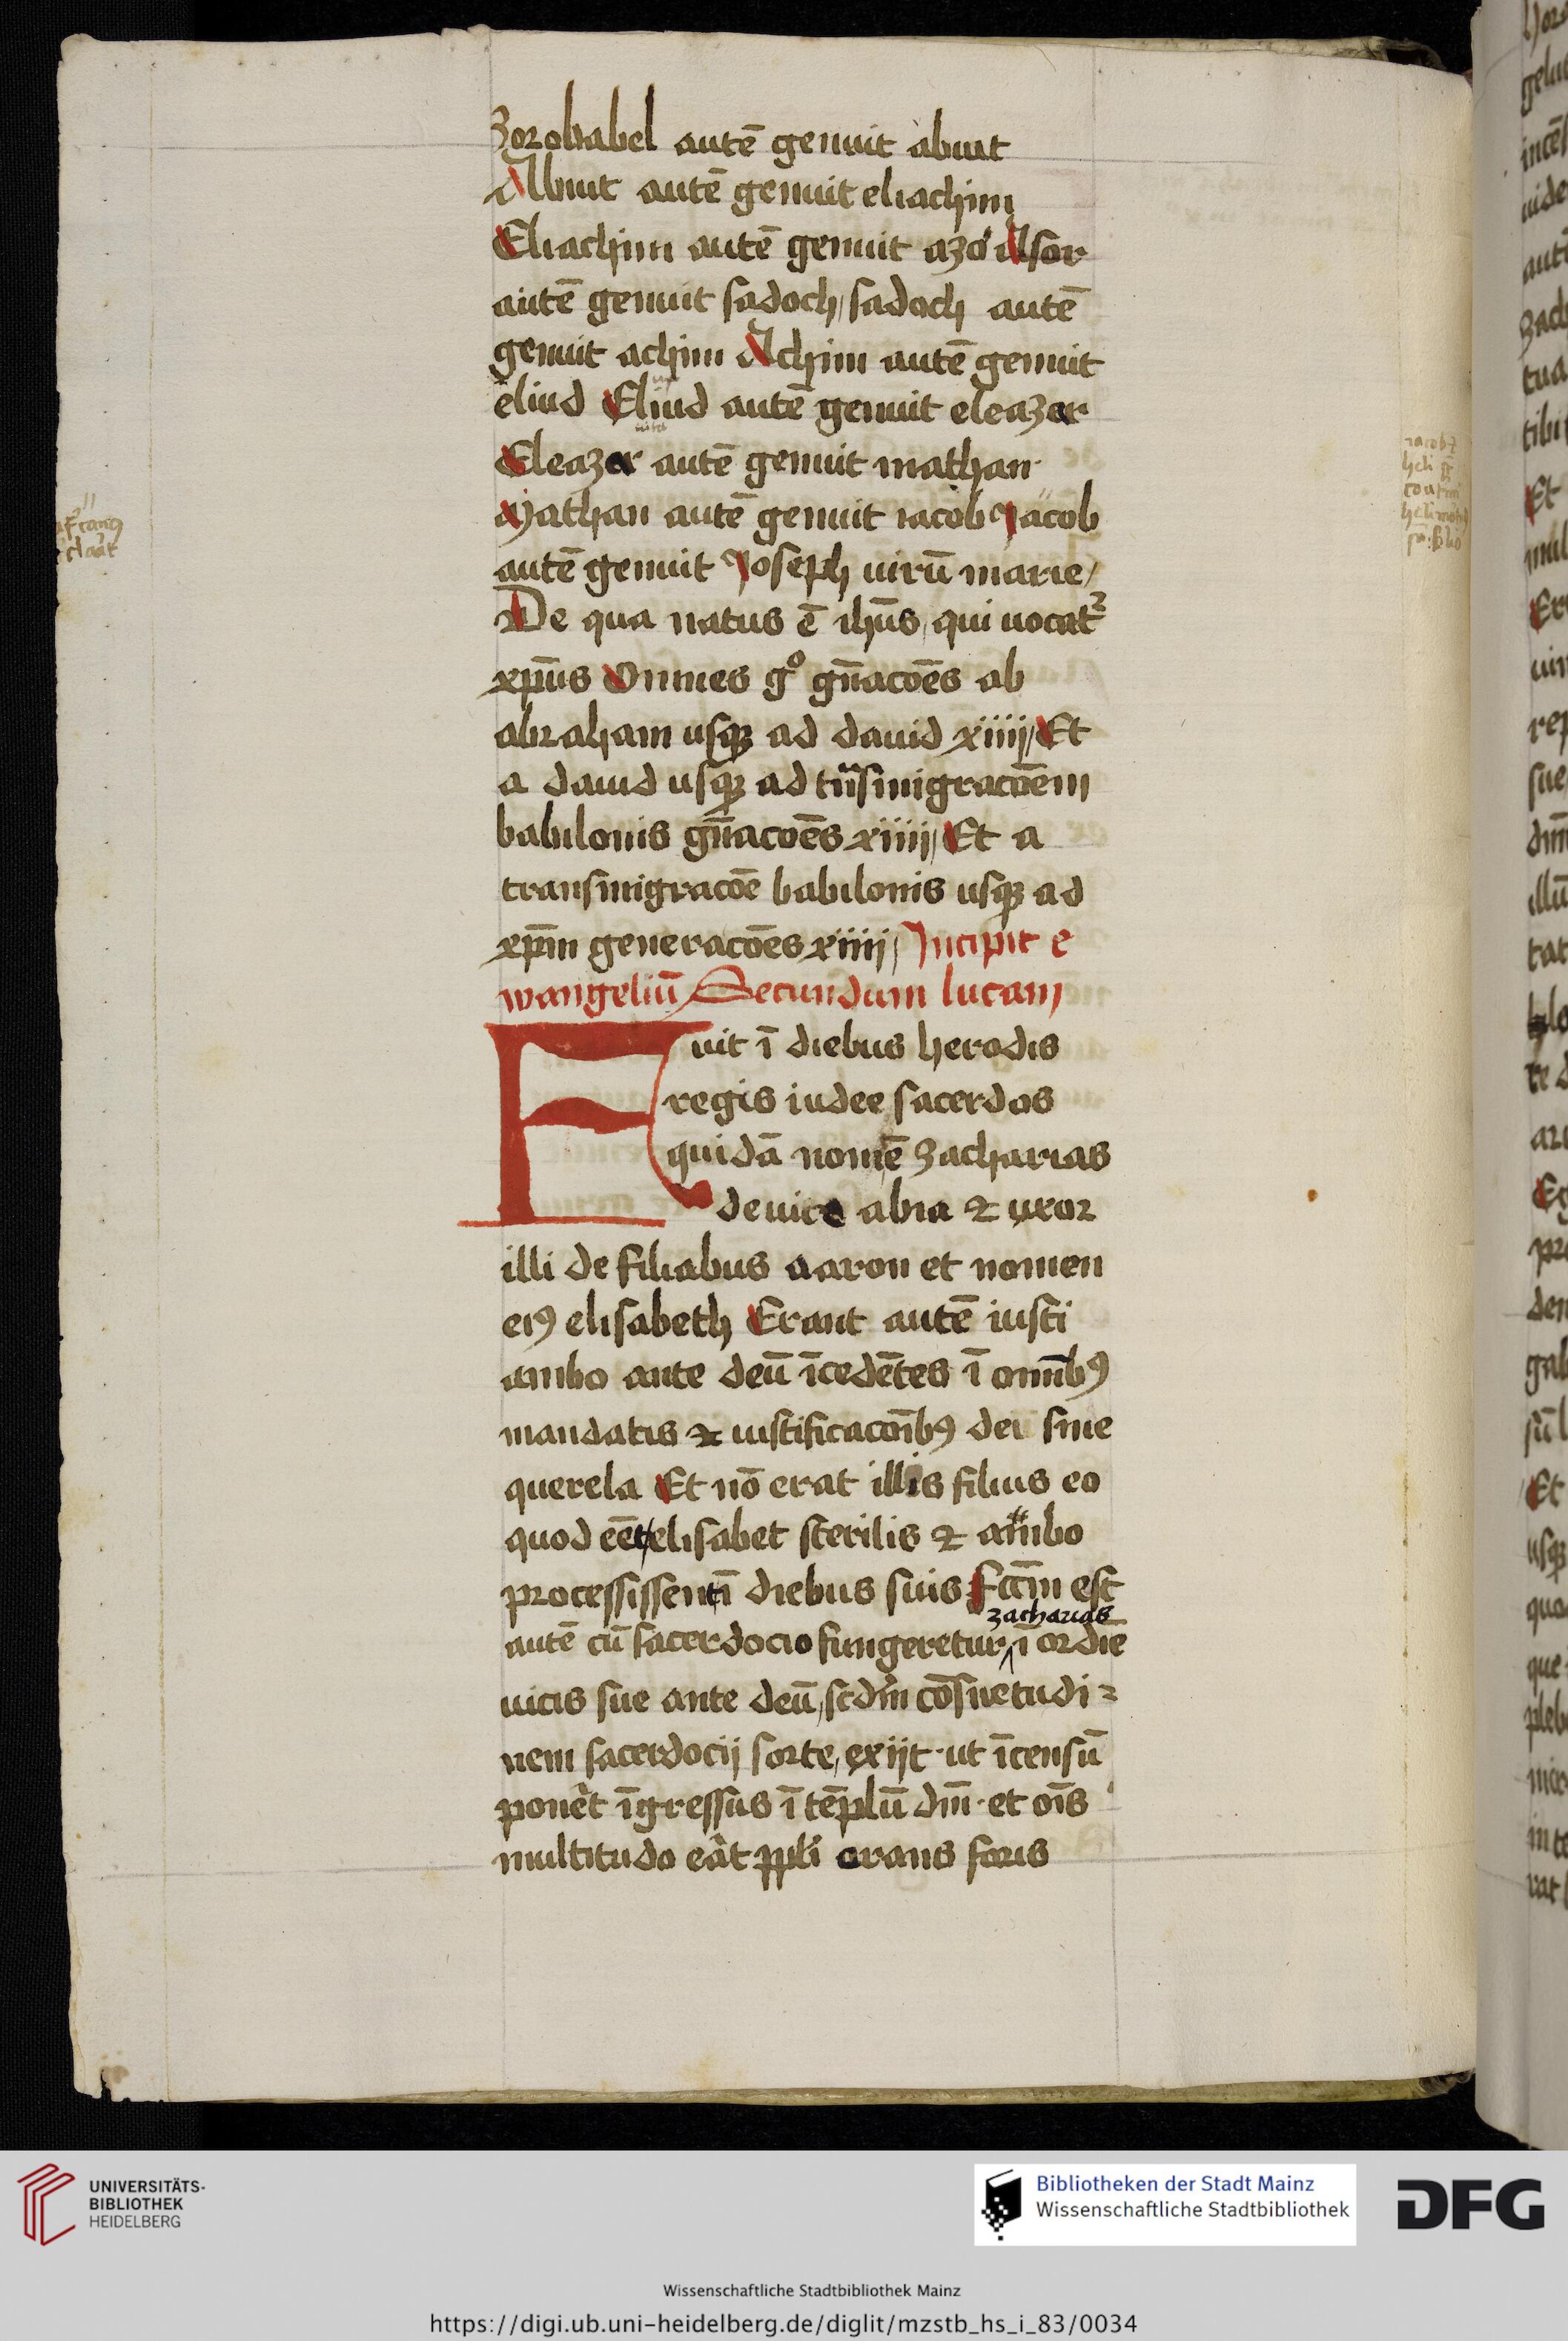 Zorobabel autē genuit abiut
Abiut autē genuit eliachim
Eliachim autē genuit azor Asor
autē genuit sadoch / sadoch autē
genuit achim Achim autē genuit
eliud Eliud autē genuit eleazer
Eleazer autē genuit mathan
Mathan autē genuit iacob Jacob
autē genuit Joseph uirū marie /
De qua natus ē ihūs / qui uocat᷑
xp̄us Omnes gͦ gn̄acōēs ab
abraham usqꝫ ad dauid xiiij / Et
a dauid usqꝫ ad tn̄smigracōem
babilonis gn̄acōēs xiiij / Et a
transmigracōe babilonis usqꝫ ad
xp̄m generacōes xiiij / Incipit e
wangeliū Secundum lucam
Fuit ī diebus herodis
regis iudee sacerdos
quidā nomē Zacharias
de uice abia ⁊ uxor
illi de filiabus aaron et nomen
eiꝰ elisabeth Erant autē iusti
ambo ante deū īcedētes ī omībꝰ
mandatis ⁊ iustificacōībꝰ dei sine
querela Et nō erat illis filius eo
quod eēt / elisabet sterilis ⁊ ambo
processissent ī diebus suis Fcām est
zacharias
autē cū sacerdocio fungeretur ī ordīe
uicis sue ante deū / scdm̄ cōsuetudi=
nem sacerdocij sorte / exijt ut īcensū
ponēt īgressus ī tēplū dm̄ · et oīs
multitudo eāt ppl̄i orans foris
UNIVERSITÄTS-
BIBLIOTHEK
HEIDELBERG
Bibliotheken der Stadt Mainz
Wissenschaftliche Stadtbibliothek
DFG
Wissenschaftliche Stadtbibliothek Mainz
https://digi.ub.uni-heidelberg.de/diglit/mzstb_hs_i_83/0034